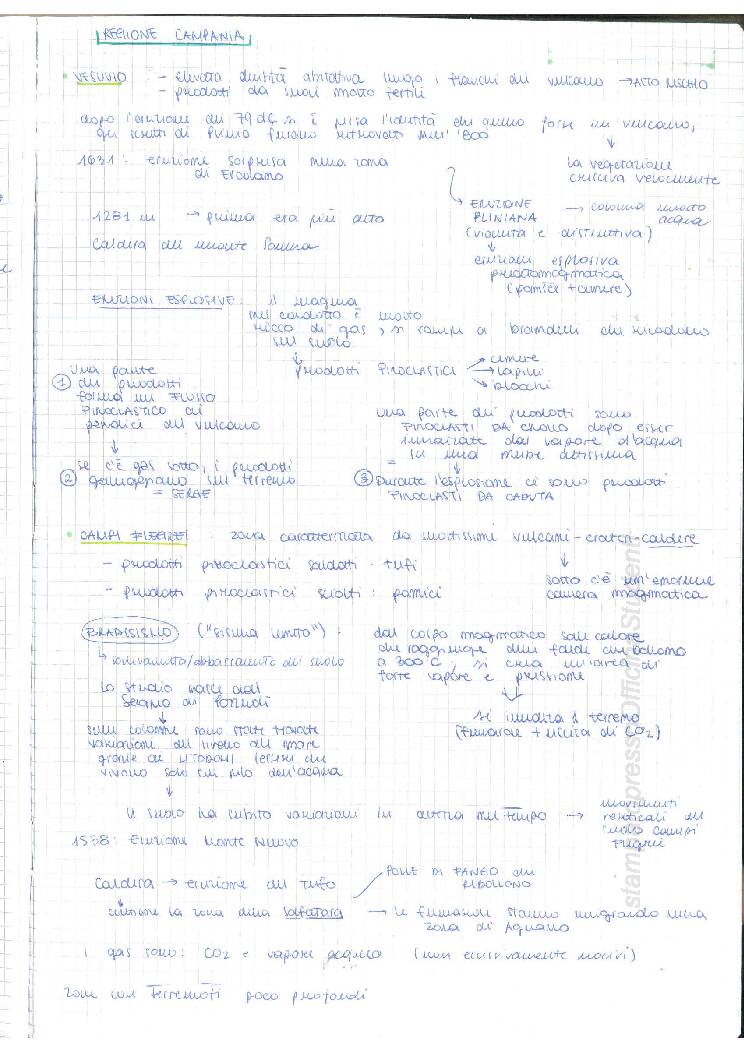 REGIONE CAMPANIA
• VESUVIO - elevata densità abitativa lungo i fianchi del vulcano → ALTO RISCHIO
- prodotti da suoli molto fertili
dopo l'eruzione del 79 d.C. si è persa l'identità che anche fosse un vulcano,
gli scritti di Plinio furono ritrovati nell' '800
↓
la vegetazione
cresceva velocemente
1631: eruzione sorpresa nella zona
di Ercolano
→ ERUZIONE
PLINIANA
(violenta e distruttiva)
→ colonna
acqua
↓
eruzioni esplosiva
freatomagmatica
(pomici + cenere)
1281 m → prima era più alto
Caldera del monte Somma
ERUZIONI ESPLOSIVE: il magma
nel condotto è molto
ricco di gas, si rompe a brandelli che ricadono
sul suolo
↓
prodotti PIROCLASTICI → cenere
→ lapilli
→ blocchi
Una parte
① dei prodotti
forma un FLUSSO
PIROCLASTICO ai
pendici del vulcano
↓
se c'è gas sotto, i prodotti
② galleggiano sul terreno
= SURGE
una parte dei prodotti sono
PIROCLASTI DA CROLLO dopo esser
innalzate dal vapore d'acqua
= in una nube altissima
↓
③ Durante l'esplosione ci sono prodotti
PIROCLASTI DA CADUTA
• CAMPI FLEGREI: zona caratterizzata da moltissimi vulcani - crateri - caldere
- prodotti piroclastici saldati: tufi
- prodotti piroclastici sciolti: pomici
↓
sotto c'è un'enorme
camera magmatica
BRADISISMO ("sisma lento"):
↳ innalzamento/abbassamento del suolo
dal corpo magmatico sale calore
che raggiunge delle falde che bollono
a 300°C, si crea un'area di
forte vapore e pressione
↓
si innalza il terreno
(fumarole + uscita di CO2)
Lo studio nasce dal
Serapeo di Pozzuoli
↓
sulle colonne sono state trovate
variazioni del livello del mare
grazie ai LITODOMI (esseri che
vivono solo sul pelo dell'acqua
↓
Il suolo ha subito variazioni in altezza nel tempo → movimenti
verticali del
suolo Campi
Flegrei
1538: Eruzione Monte Nuovo
Caldera → eruzione del TUFO
POLLE DI FANGO che
RIBOLLONO
contiene la zona della solfatara → le fumarole stanno migrando nella
zona di Agnano
i gas sono: CO2 e vapore acqueo (non eccessivamente nocivi)
zone con Terremoti poco profondi
stampato presso Officina Studenti